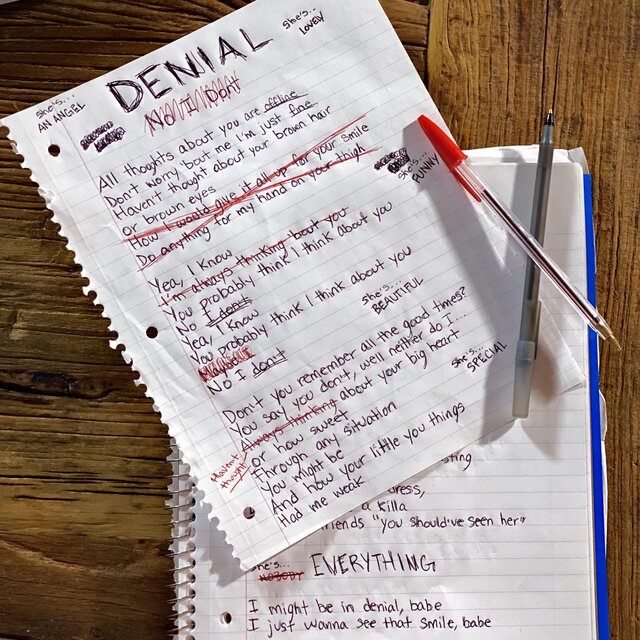 she's...
LOVELY
DENIAL
NO I DON'T
she's...
AN ANGEL
All thoughts about you are offline
Don't worry 'bout me I'm just fine
Haven't thought about your brown hair
Or brown eyes
How I would give it all up for your smile
Do anything for my hand on your thigh
she's...
FUNNY
Yea, I know
I'm always thinking 'bout you
You probably think I think about you
No I don't
Yea, I know
You probably think I think about you
Maybe
No I don't
she's...
BEAUTIFUL
Don't you remember all the good times?
You say you don't, well neither do I...
Always thinking about your big heart
Haven't
thought
or how sweet
she's...
SPECIAL
Through any situation
You might be
And how your little you things
Had me weak
dress,
a killa
friends "you should've seen her"
she's...
NOBODY
EVERYTHING
I might be in denial, babe
I just wanna see that smile, babe